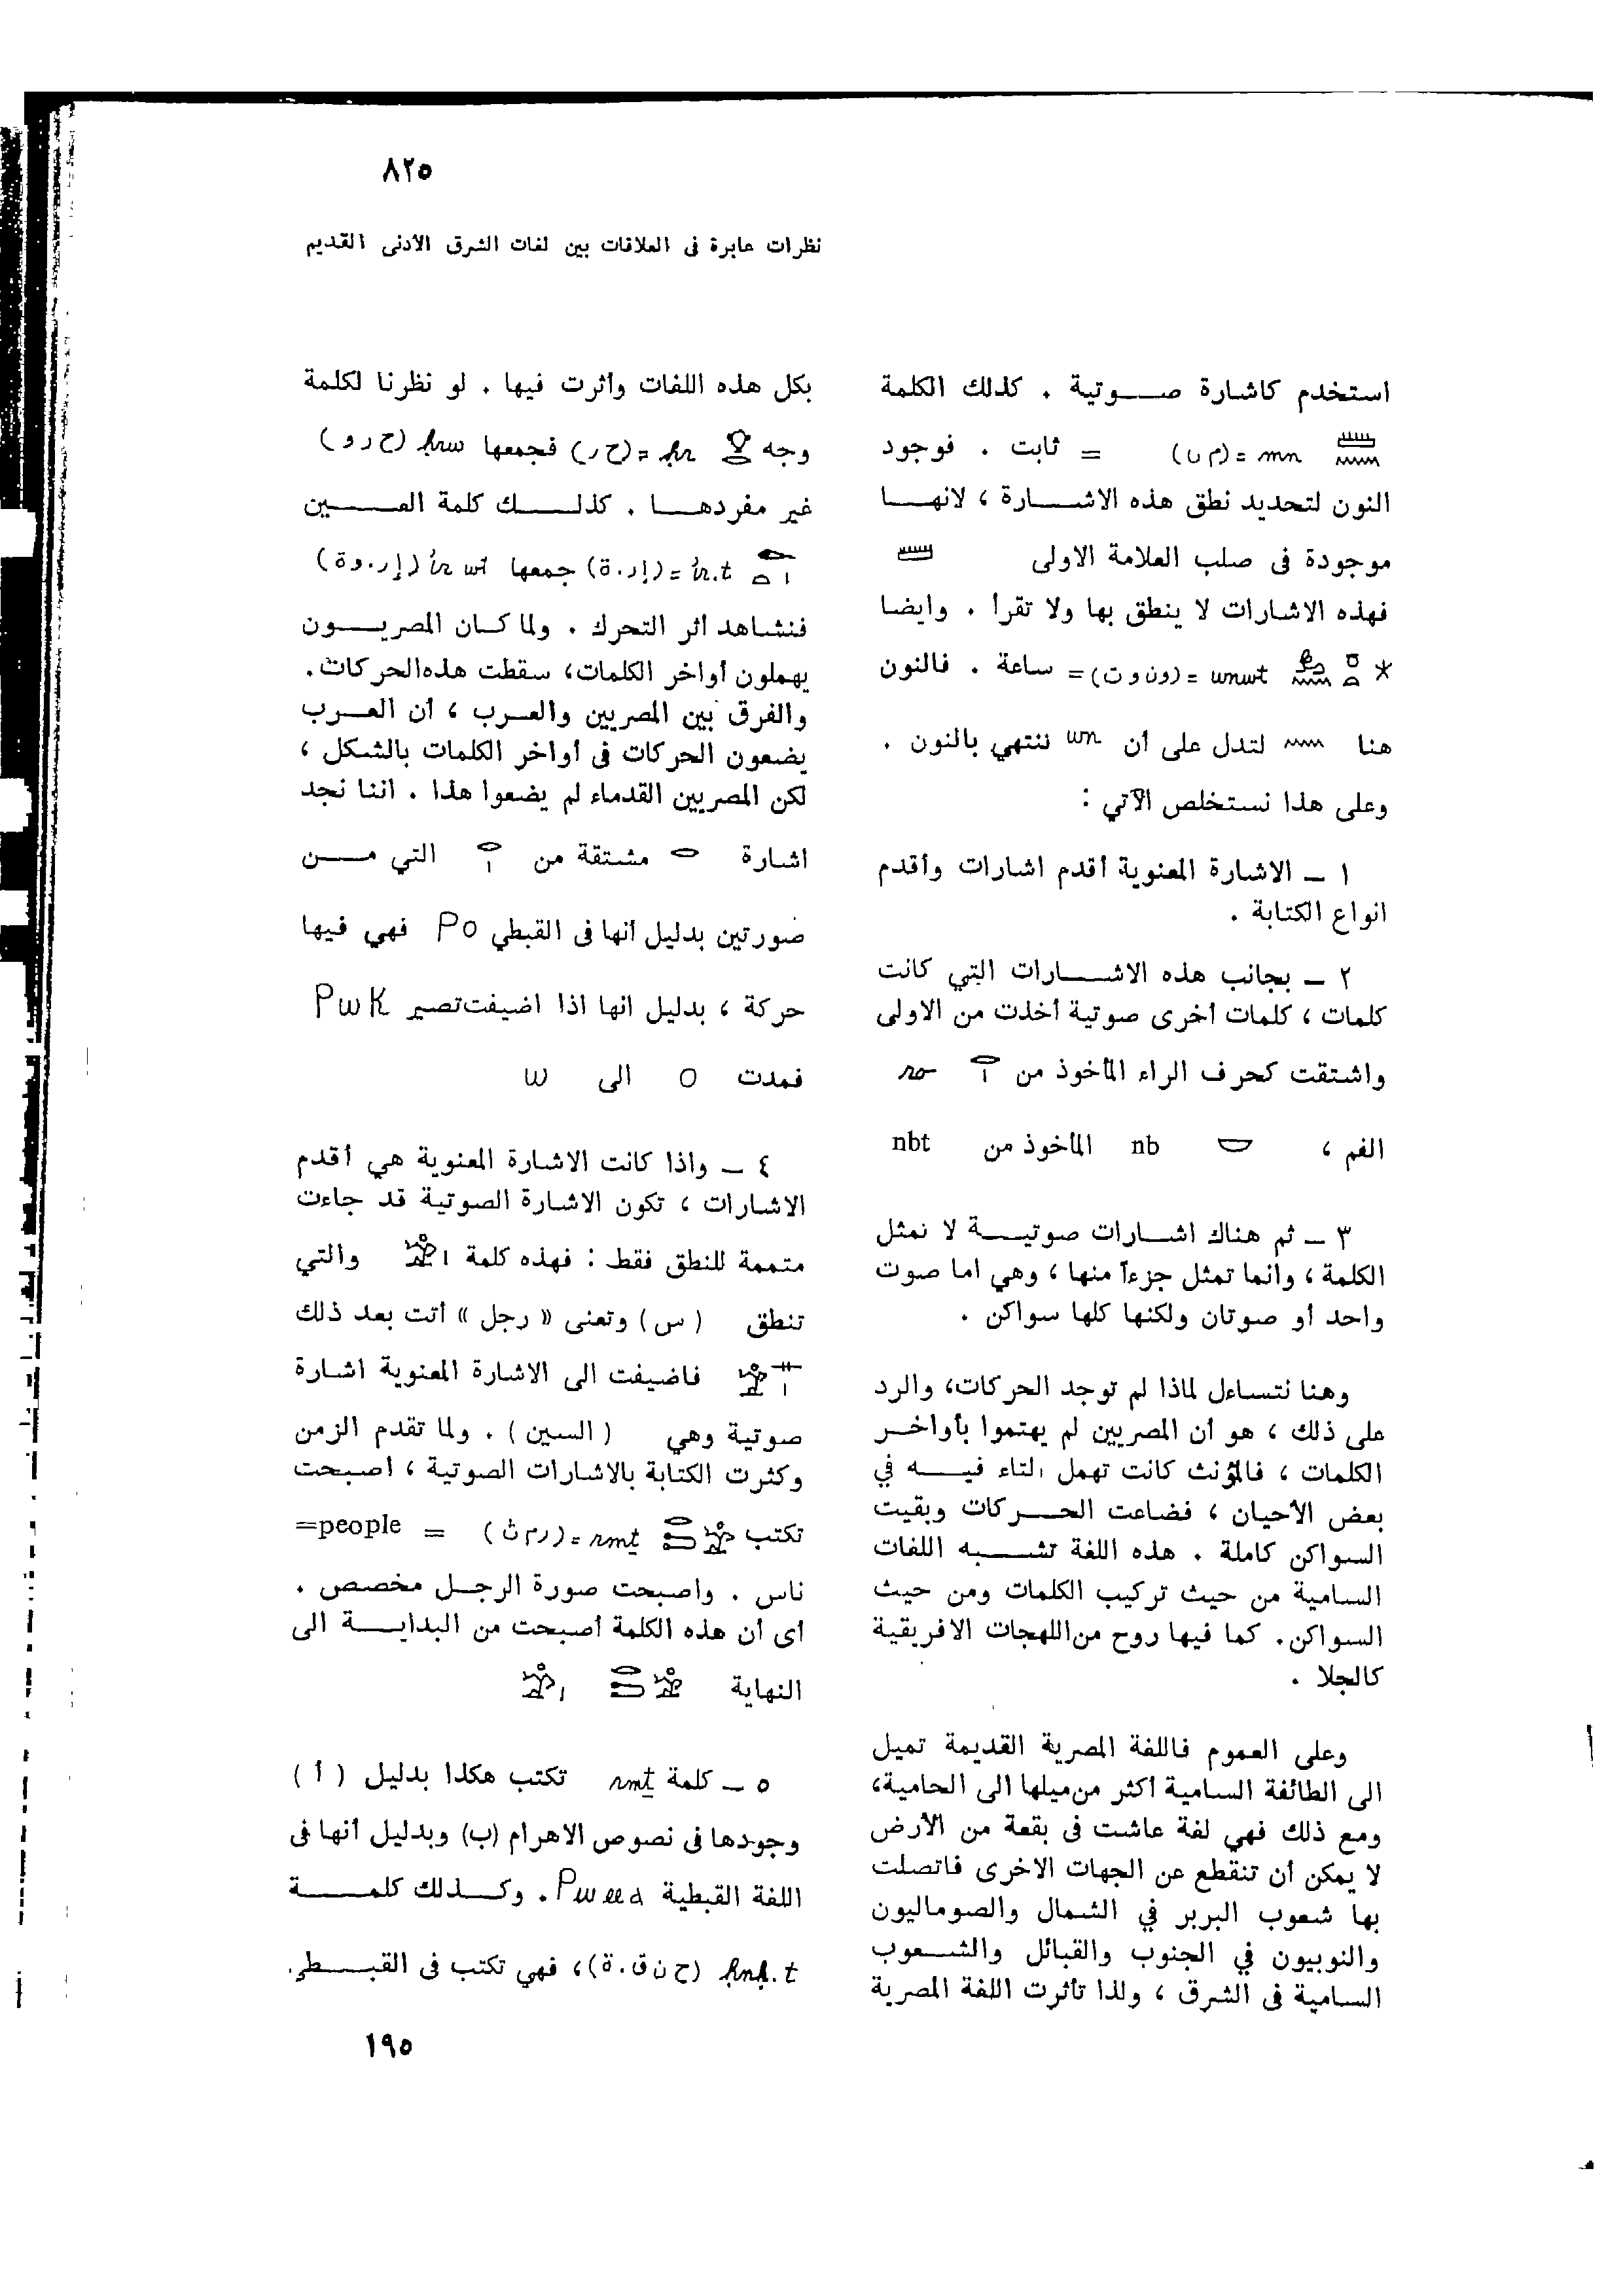 ٨٢٥
نظرات عابرة فى العلاقات بين لغات الشرق الأدنى القديم
استخدم كاشارة صوتية . كذلك الكلمة
mn = (م ن) = ثابت . فوجود
النون لتحديد نطق هذه الاشارة ، لانها
موجودة فى صلب العلامة الاولى
فهذه الاشارات لا ينطق بها ولا تقرأ . وايضا
wnwt = (ون و ت) = ساعة . فالنون
هنا لتدل على أن wn تنتهي بالنون .
وعلى هذا نستخلص الآتي :
١ ــ الاشارة المعنوية أقدم اشارات وأقدم
انواع الكتابة .
٢ ــ بجانب هذه الاشارات التي كانت
كلمات ، كلمات أخرى صوتية أخذت من الاولى
واشتقت كحرف الراء المأخوذ من ro
الفم ، nb المأخوذ من nbt
٣ ــ ثم هناك اشارات صوتية لا تمثل
الكلمة ، وانما تمثل جزءاً منها ، وهي اما صوت
واحد أو صوتان ولكنها كلها سواكن .
وهنا نتساءل لماذا لم توجد الحركات، والرد
على ذلك ، هو أن المصريين لم يهتموا بأواخر
الكلمات ، فالمؤنث كانت تهمل التاء فيه في
بعض الأحيان ، فضاعت الحركات وبقيت
السواكن كاملة . هذه اللغة تشبه اللغات
السامية من حيث تركيب الكلمات ومن حيث
السواكن. كما فيها روح من اللهجات الافريقية
كالجلا .
وعلى العموم فاللغة المصرية القديمة تميل
الى الطائفة السامية أكثر من ميلها الى الحامية،
ومع ذلك فهي لغة عاشت فى بقعة من الأرض
لا يمكن أن تنقطع عن الجهات الاخرى فاتصلت
بها شعوب البربر في الشمال والصوماليون
والنوبيون في الجنوب والقبائل والشعوب
السامية فى الشرق ، ولذا تأثرت اللغة المصرية
بكل هذه اللغات وأثرت فيها . لو نظرنا لكلمة
وجه ḥr = (ح ر) فجمعها ḥrw (ح ر و)
غير مفردها . كذلك كلمة العين
ir.t = (إر.ة) جمعها ir wt (إر.وة)
فنشاهد أثر التحرك . ولما كان المصريون
يهملون أواخر الكلمات، سقطت هذه الحركات.
والفرق بين المصريين والعرب ، أن العرب
يضعون الحركات فى أواخر الكلمات بالشكل ،
لكن المصريين القدماء لم يضعوا هذا . اننا نجد
اشارة مشتقة من التي من
صورتين بدليل أنها فى القبطي Po فهي فيها
حركة ، بدليل انها اذا اضيفت تصير PwK
فمدت o الى w
٤ ــ واذا كانت الاشارة المعنوية هي أقدم
الاشارات ، تكون الاشارة الصوتية قد جاءت
متممة للنطق فقط : فهذه كلمة والتي
تنطق (س) وتعنى « رجل » أتت بعد ذلك
فاضيفت الى الاشارة المعنوية اشارة
صوتية وهي (السين) . ولما تقدم الزمن
وكثرت الكتابة بالاشارات الصوتية ، أصبحت
تكتب rmṯ = (رم ث) = people=
ناس . واصبحت صورة الرجل مخصص .
أى أن هذه الكلمة أصبحت من البداية الى
النهاية
٥ ــ كلمة rmṯ تكتب هكذا بدليل (أ)
وجودها فى نصوص الاهرام (ب) وبدليل أنها فى
اللغة القبطية . وكذلك كلمة
ḥnḳ.t (ح ن ق.ة)، فهي تكتب فى القبطي.
١٩٥